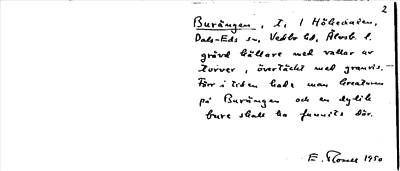 2
Burängen, t. 1 Höbedalen,
Dals-Eds sn, Vedbo hd, Älvsb. l.
grävd källare med vallar av
torver, övertäckt med granris.
Förr i tiden hade man kreaturen
på Burängen och en dylik
bure skall ha funnits där.
E. 1950